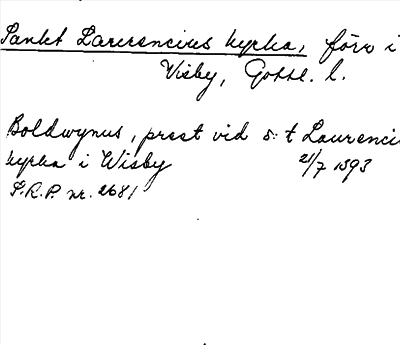 Sankt Laurencius kyrka, förr i
Visby, Gotl. l.
Boldwynus, prest vid s:t Laurenci
kyrka i Wisby 21/7 1393
S.R.P. nr. 2681